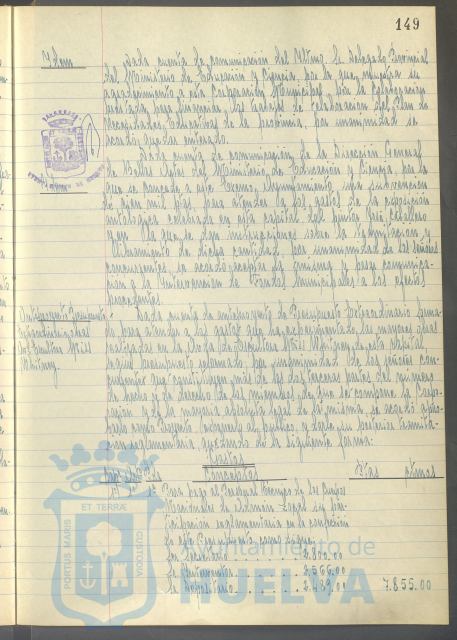 149
Idem
Dada cuenta de comunicación del Iltmo. Sr. Delegado Provincial
del Ministerio de Educación y Ciencia, por la que muestra su
agradecimiento a esta Corporación Municipal por la colaboración
prestada para
los trabajos de elaboración del Plan de
Necesidades Educativas de la provincia, por unanimidad se
acordó quedar enterado.
Dada cuenta de comunicación de la Dirección General
de Bellas Artes del Ministerio de Educación y Ciencia, por la
que se concede a este Excmo. Ayuntamiento una subvención
de cien mil ptas. para atender a los gastos de la exposición
antológica celebrada en esta capital del pintor José Caballero
y en la que se dan instrucciones sobre la
y
libramiento de dicha cantidad, por unanimidad de los señores
concurrentes se acordó aceptar la misma y pase comunica-
ción a la Intervención de Fondos Municipales a los efectos
procedentes.
Anteproyecto Presupuesto
Extraordinario
Avd. Escultora Miss
Whitney.
Dada cuenta de anteproyecto de Presupuesto Extraordinario forma-
do para atender a los gastos que ha experimentado las mayores obras
realizadas en la Avda. de Escultora Miss Whitney de esta capital
por unanimidad de los señores con-
currentes que constituyen más de las dos terceras partes del número
de hecho y de derecho de los miembros de que se compone la Corpo-
ración y de la mayoría absoluta legal de la misma, se acordó apro-
barlo como Proyecto, exponerlo al público y darle su posterior tramita-
ción reglamentaria, quedando de la siguiente forma:
Gastos
Conceptos
Ptas
Para pago al Personal
de los Cuerpos
Nacionales de Admon. Local su par-
ticipación reglamentaria en la confección
de este Presupuesto, como sigue:
Sr. Secretario . . . . . . . . 2.800.00
Sr. Interventor . . . . . . . . 2.566.00
Sr. Depositario . . . . . . . . 2.489.00 7.855.00
ET TERRÆ
PORTUS MARIS
CUSTODIA
Ayuntamiento de
HUELVA